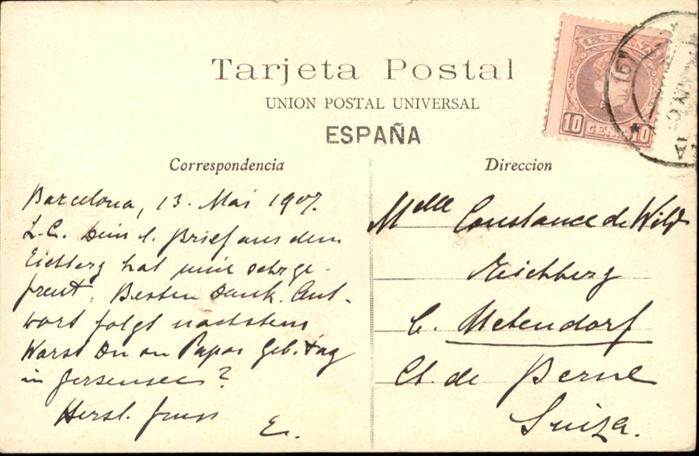 Tarjeta Postal
UNION POSTAL UNIVERSAL
ESPAÑA
Correspondencia
Barcelona, 13. Mai 1907.
L.C. Dein l. Brief aus dem
Eichberg hat mir sehr ge-
freut. Besten Dank. Ant-
wort folgt nächstens
Warst Du an Papas Geb. tag
in Gerzensee?
Herzl. Gruss
E.
Direccion
Melle Constance de Wild
Eichberg
b. Uetendorf
Ct. de Berne
Suiza.
10 CENT. 10